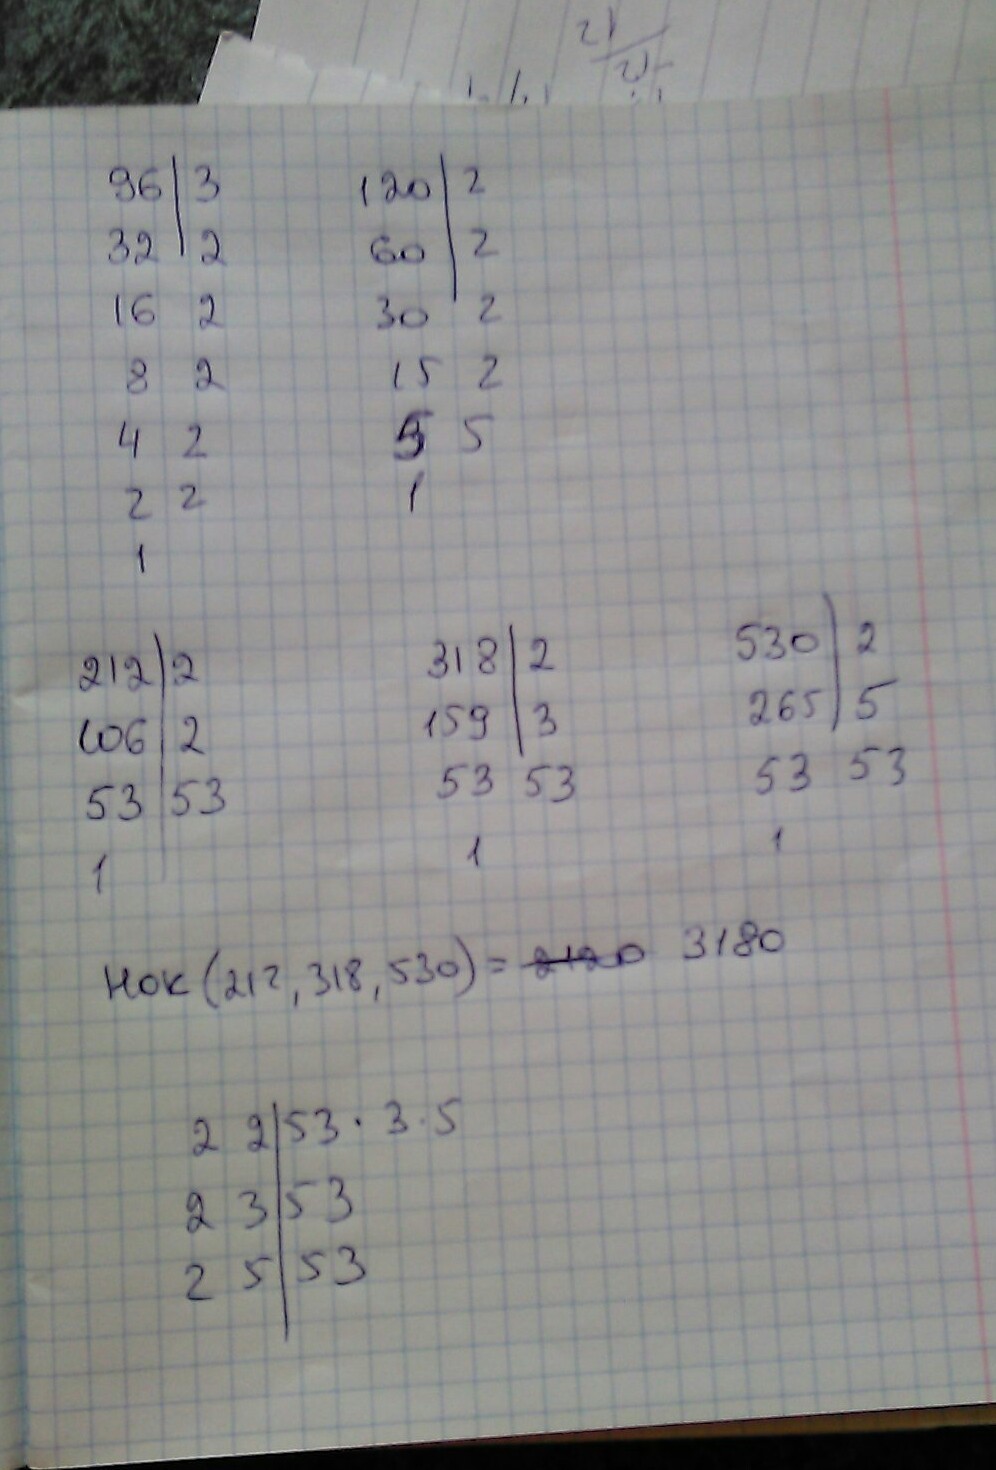 96 | 3 120 | 2
32 | 2 60 | 2
16 2 30 2
8 2 15 2
4 2 5 5
2 2 1
1
212 | 2 318 | 2 530 | 2
106 | 2 159 | 3 265 | 5
53 | 53 53 53 53 53
1 1 1
НОК (212, 318, 530) = 2120 3180
2 2 | 53 · 3 · 5
2 3 | 53
2 5 | 53